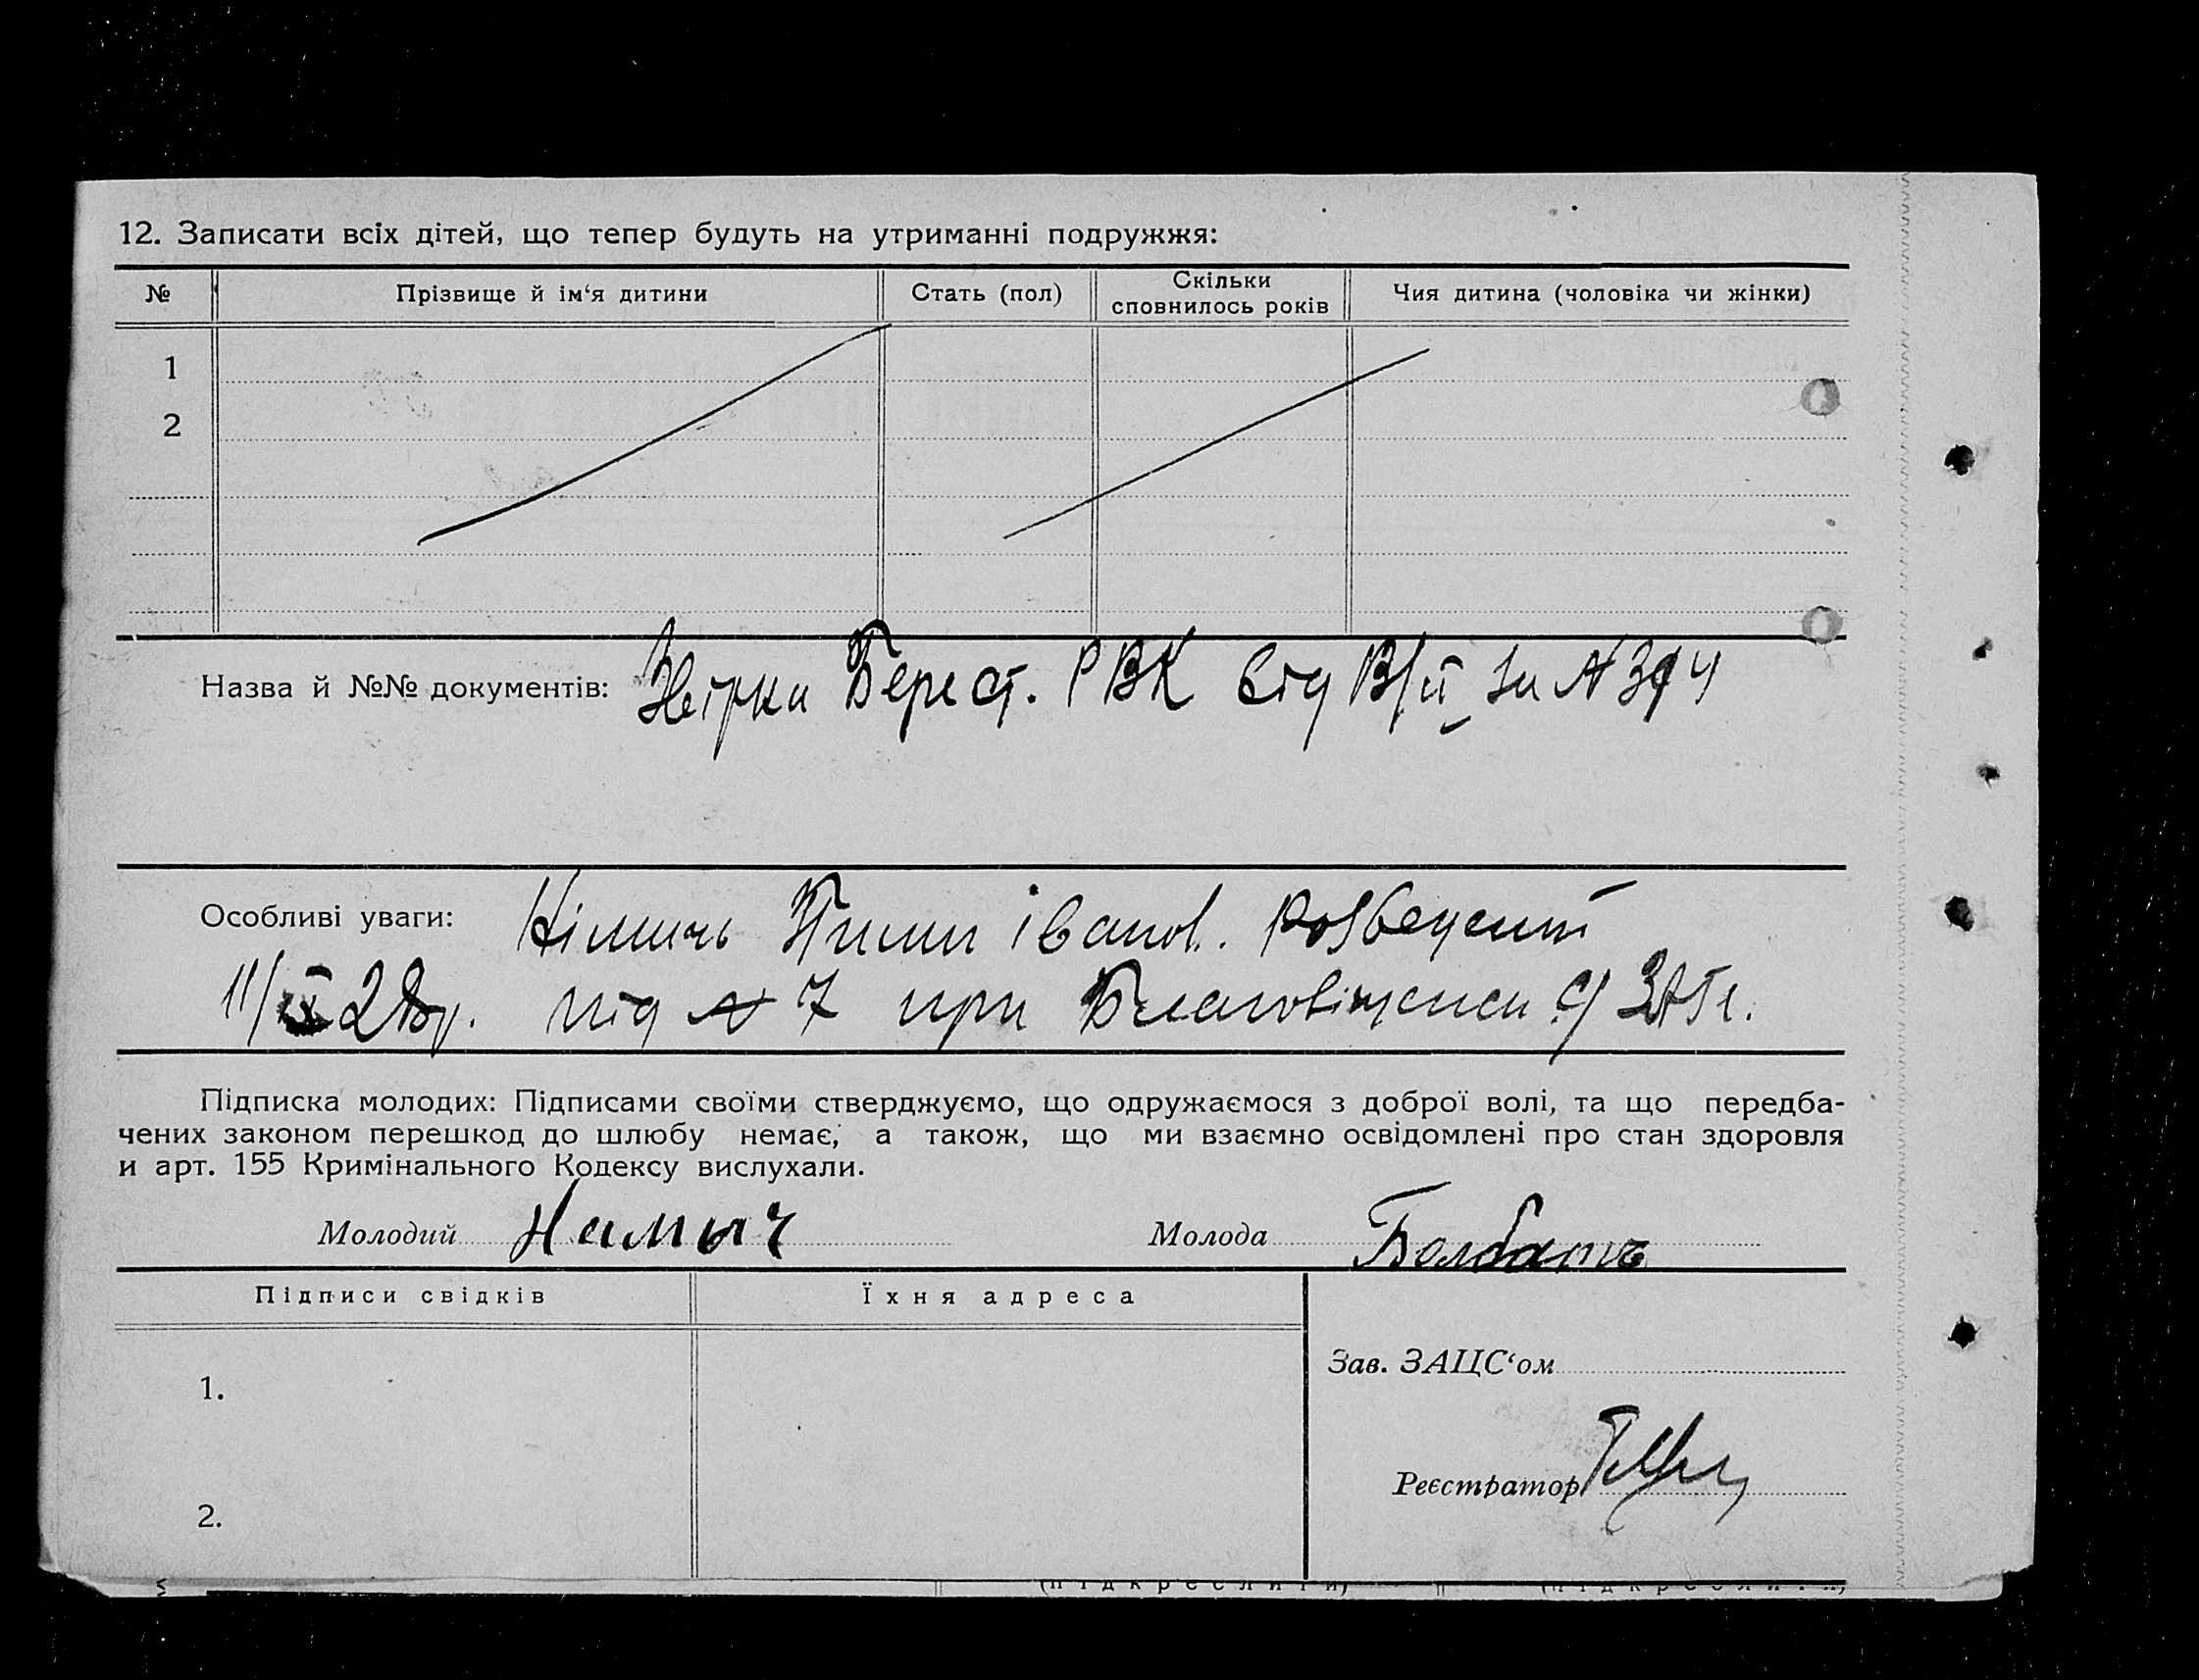 12. Записати всіх дітей, що тепер будуть на утриманні подружжя:
№ Прізвище й ім‘я дитини Стать (пол) Скільки сповнилось років Чия дитина (чоловіка чи жінки)
1
2
Назва й №№ документів: Берест. РВК від за №
Особливі уваги: Іванов. розведений
11/IX 28р. під № 7 при Благовіщенск с/ ЗАГС.
Підписка молодих: Підписами своїми стверджуємо, що одружаємося з доброї волі, та що передба-
чених законом перешкод до шлюбу немає, а також, що ми взаємно освідомлені про стан здоровля
и арт. 155 Кримінального Кодексу вислухали.
Молодий Молода
Підписи свідків Їхня адреса
Зав. ЗАЦС‘ом
1.
Реєстратор
2.
(підкреслити) (підкреслити)